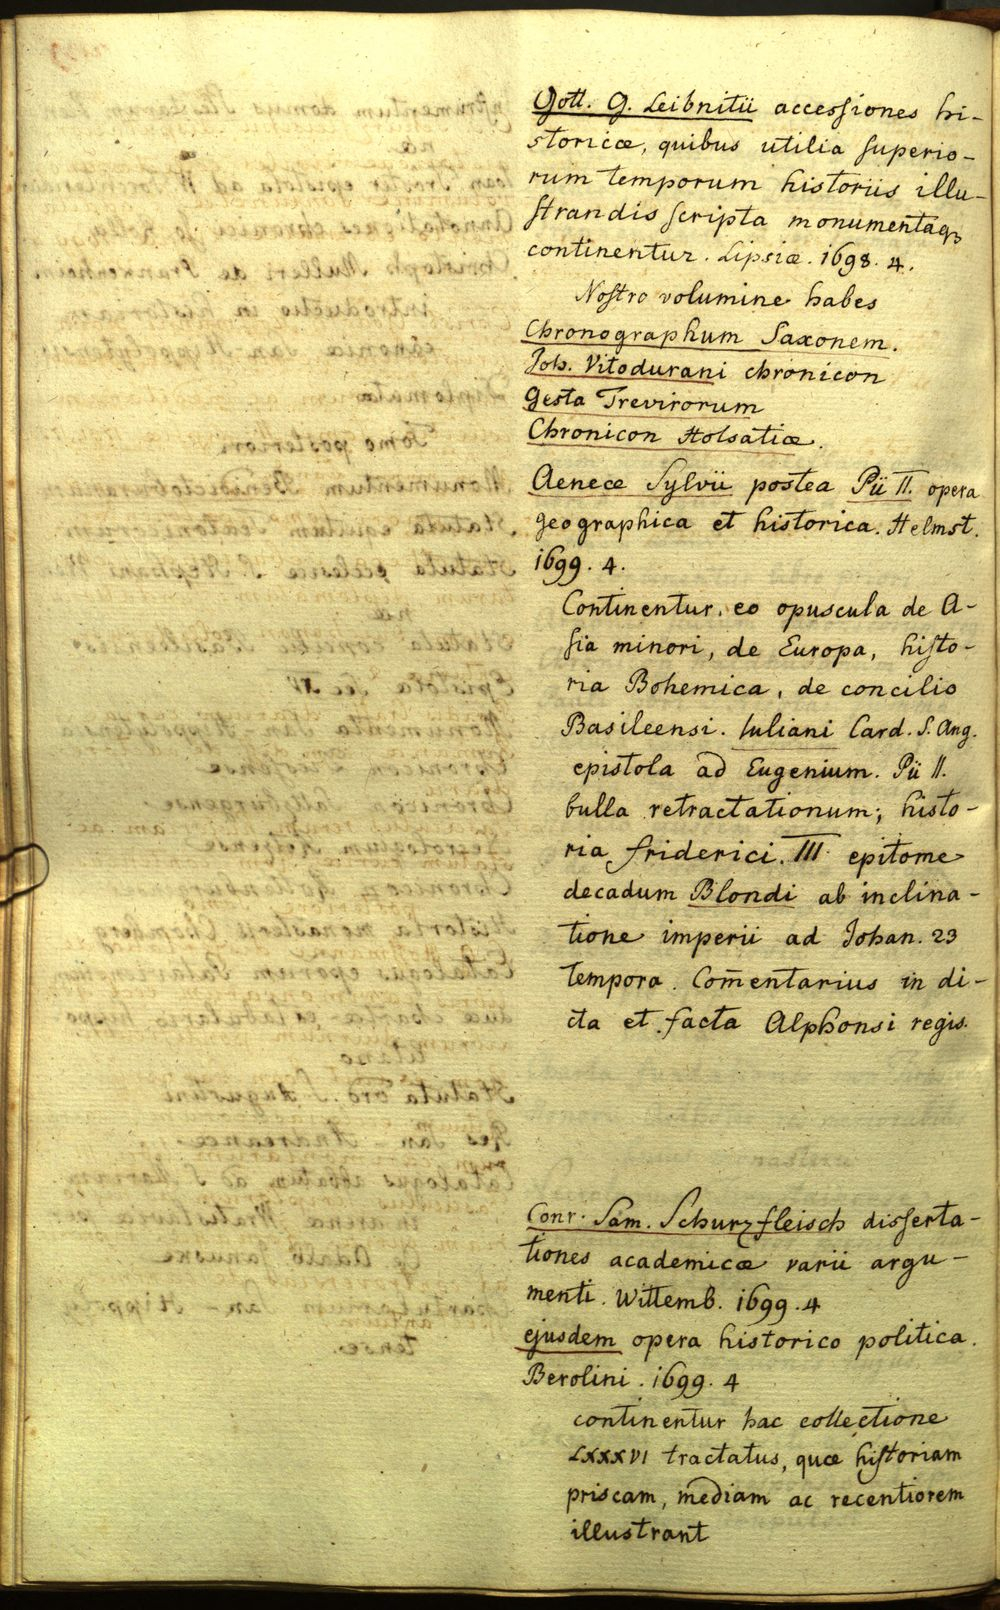 Gott. G. Leibnitii accessiones hi-
storicæ, quibus utilia superio-
rum temporum historiis illu-
strandis scripta monumentaqȝ
continentur. Lipsiæ. 1698. 4.
Nostro volumine habes
Chronographum Saxonem.
Joh. Vitodurani chronicon
Gesta Trevirorum
Chronicon Holsatiæ.
Aeneæ Sylvii postea Pii II. opera
geographica et historica. Helmst.
1699. 4.
Continentur eo opuscula de A-
sia minori, de Europa, histo-
ria Bohemica, de concilio
Basileensi. Iuliani Card. S. Ang.
epistola ad Eugenium. Pii II.
bulla retractationum; histo-
ria friderici. III. epitome
decadum Blondi ab inclina-
tione imperii ad Johan. 23
tempora. Com̄entarius in di-
cta et facta Alphonsi regis.
Conr. Sam. Schurzfleisch disserta-
tiones academicæ varii argu-
menti. Wittemb. 1699. 4
ejusdem opera historico politica.
Berolini. 1699. 4
continentur hac collectione
LXXXVI tractatus, quæ historiam
priscam, mediam ac recentiorem
illustrant